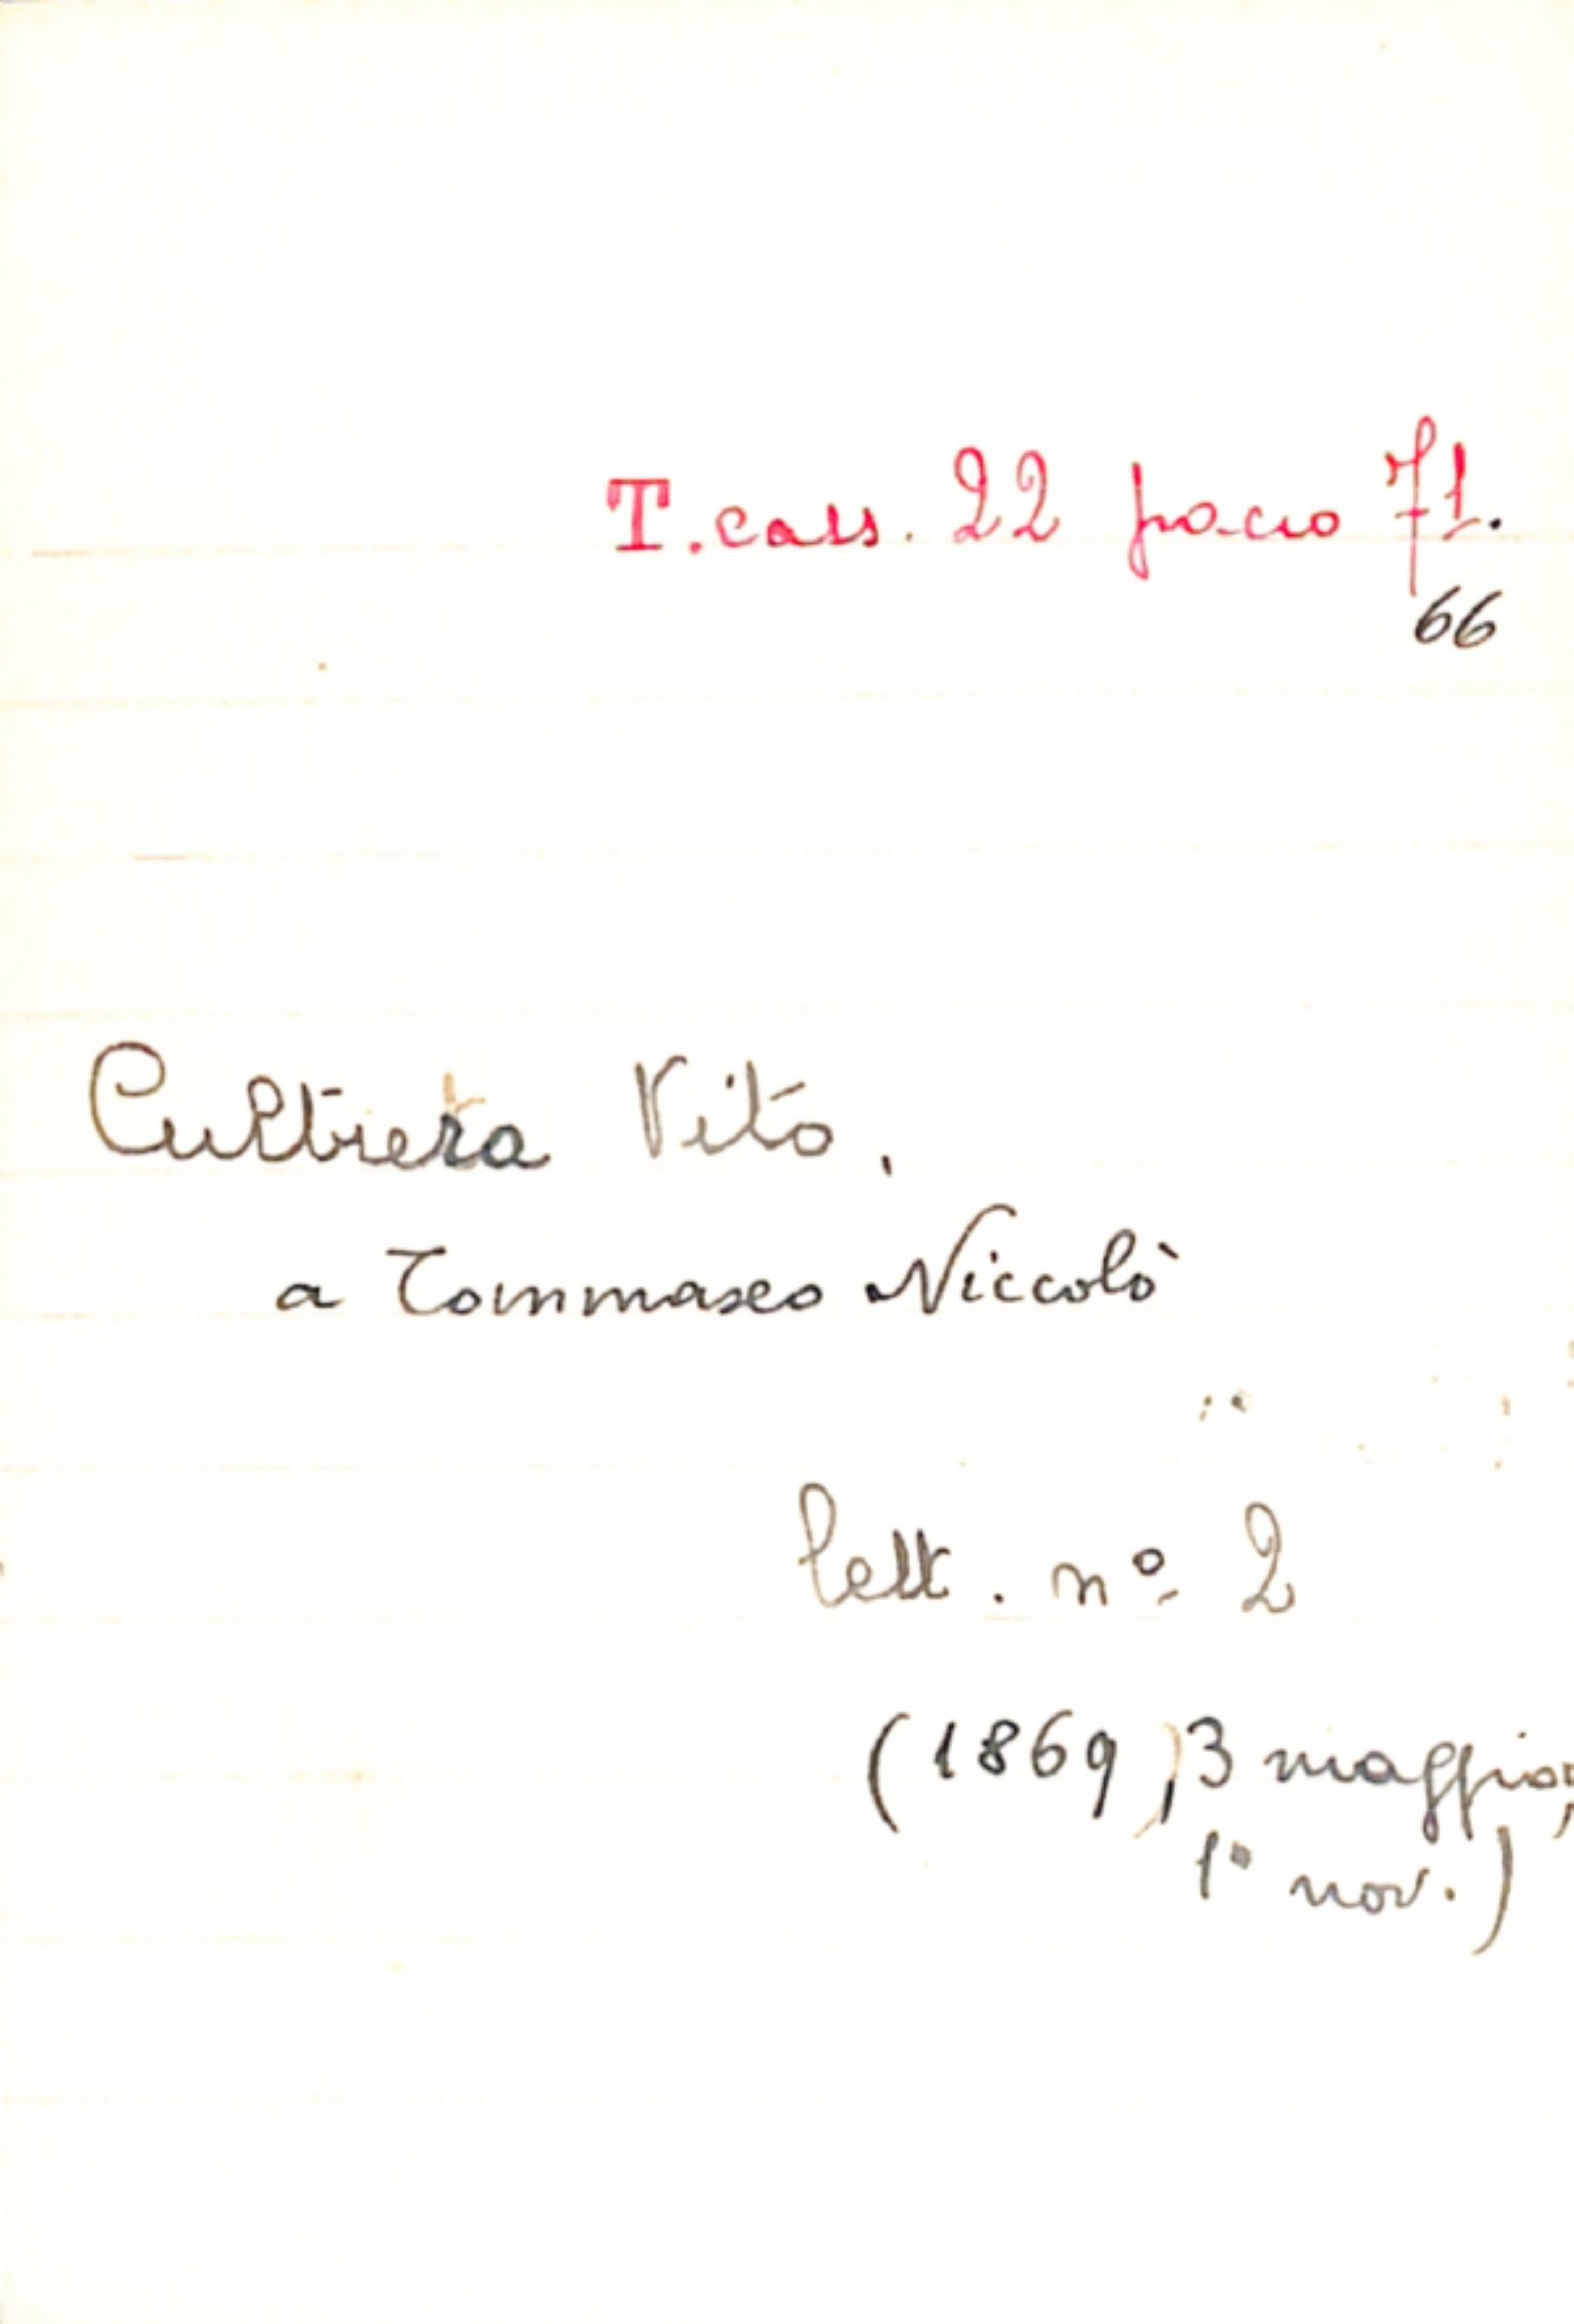 T. cass. 22 pacco 71.
66
Cultrera Vito,
a Tommaseo Niccolò
lett. nº 2
(1869, 3 maggio;
1º nov.)